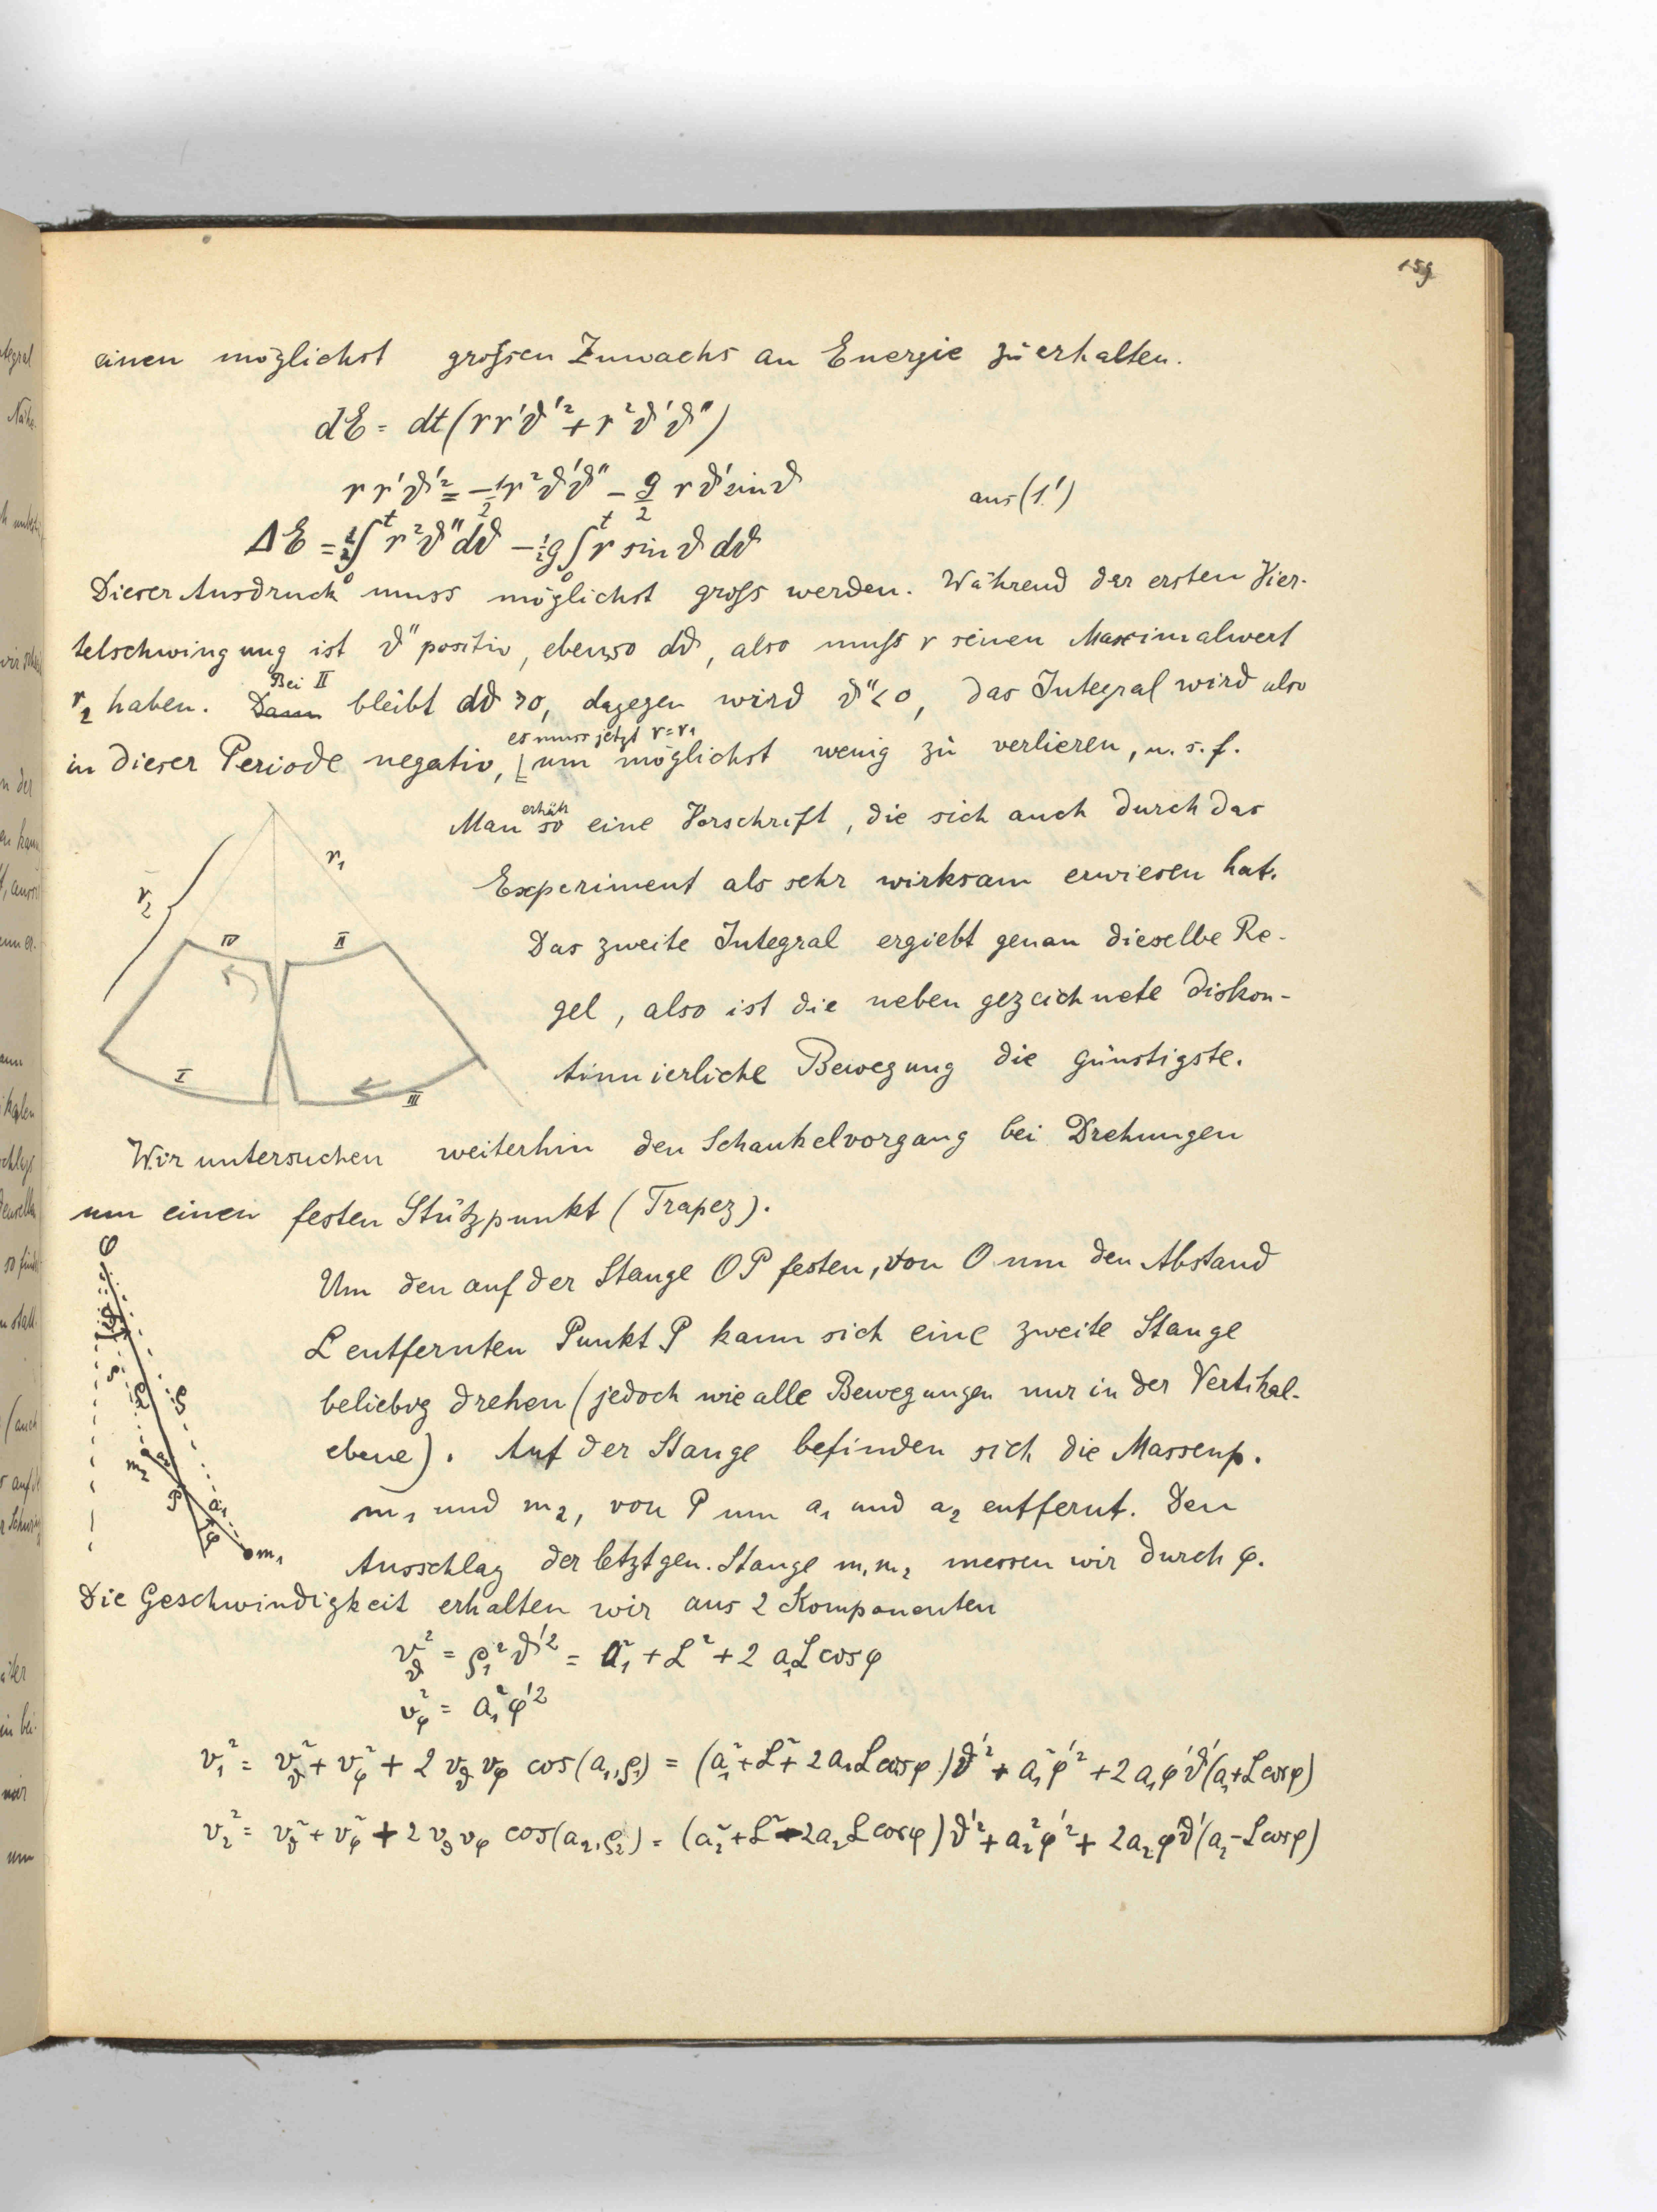 159
einen möglichst groſsen Zuwachs an Energie zu erhalten.
dE = dt (r r' ϑ'² + r² ϑ' ϑ'')
r r' ϑ'² = -½ r² ϑ' ϑ'' - g/2 r ϑ' sin ϑ aus (1')
ΔE = ½ ∫₀ᵗ r² ϑ'' dϑ - ½ g ∫₀ᵗ r sin ϑ dϑ
Dieser Ausdruck muss möglichst groſs werden. Während der ersten Vier-
telschwingung ist ϑ'' positiv, ebenso dϑ, also muſs r seinen Maximalwert
r₂ haben. Dann Bei II bleibt dϑ > 0, dagegen wird ϑ'' < 0, das Integral wird also
in dieser Periode negativ, es muss jetzt r = r₁ um möglichst wenig zu verlieren, u. s. f.
Man erhält so eine Vorschrift, die sich auch durch das
Experiment als sehr wirksam erwiesen hat.
Das zweite Integral ergiebt genau dieselbe Re-
gel, also ist die neben gezeichnete diskon-
tinuierliche Bewegung die günstigste.
r₂ r₁
IV II
I III
Wir untersuchen weiterhin den Schaukelvorgang bei Drehungen
um einen festen Stützpunkt (Trapez).
Um den auf der Stange OP festen, von O um den Abstand
L entfernten Punkt P kann sich eine zweite Stange
beliebig drehen (jedoch wie alle Bewegungen nur in der Vertikal-
ebene). Auf der Stange befinden sich die Massenp.
m₁ und m₂, von P um a₁ und a₂ entfernt. Den
Ausschlag der letztgen. Stange m₁m₂ messen wir durch φ.
O
ϑ
m₂ a₂
P a₁
φ m₁
Die Geschwindigkeit erhalten wir aus 2 Komponenten
v_ϑ² = ρ₁² ϑ'² = a₁² + L² + 2 a₁ L cos φ
v_φ² = a₁² φ'²
v₁² = v_ϑ² + v_φ² + 2 v_ϑ v_φ cos (a₁, ρ₁) = (a₁² + L² + 2 a₁ L cos φ) ϑ'² + a₁² φ'² + 2 a₁ φ' ϑ' (a₁ + L cos φ)
v₂² = v_ϑ² + v_φ² + 2 v_ϑ v_φ cos (a₂, ρ₂) = (a₂² + L² - 2 a₂ L cos φ) ϑ'² + a₂² φ'² + 2 a₂ φ' ϑ' (a₂ - L cos φ)